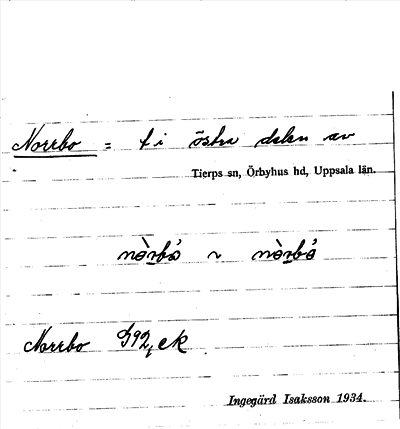 Norrbo = t i östra delen av
Tierps sn, Örbyhus hd, Uppsala län.
nòrbo̍ ~ nòrbo̍
Norrbo 392, ek
Ingegärd Isaksson 1934.